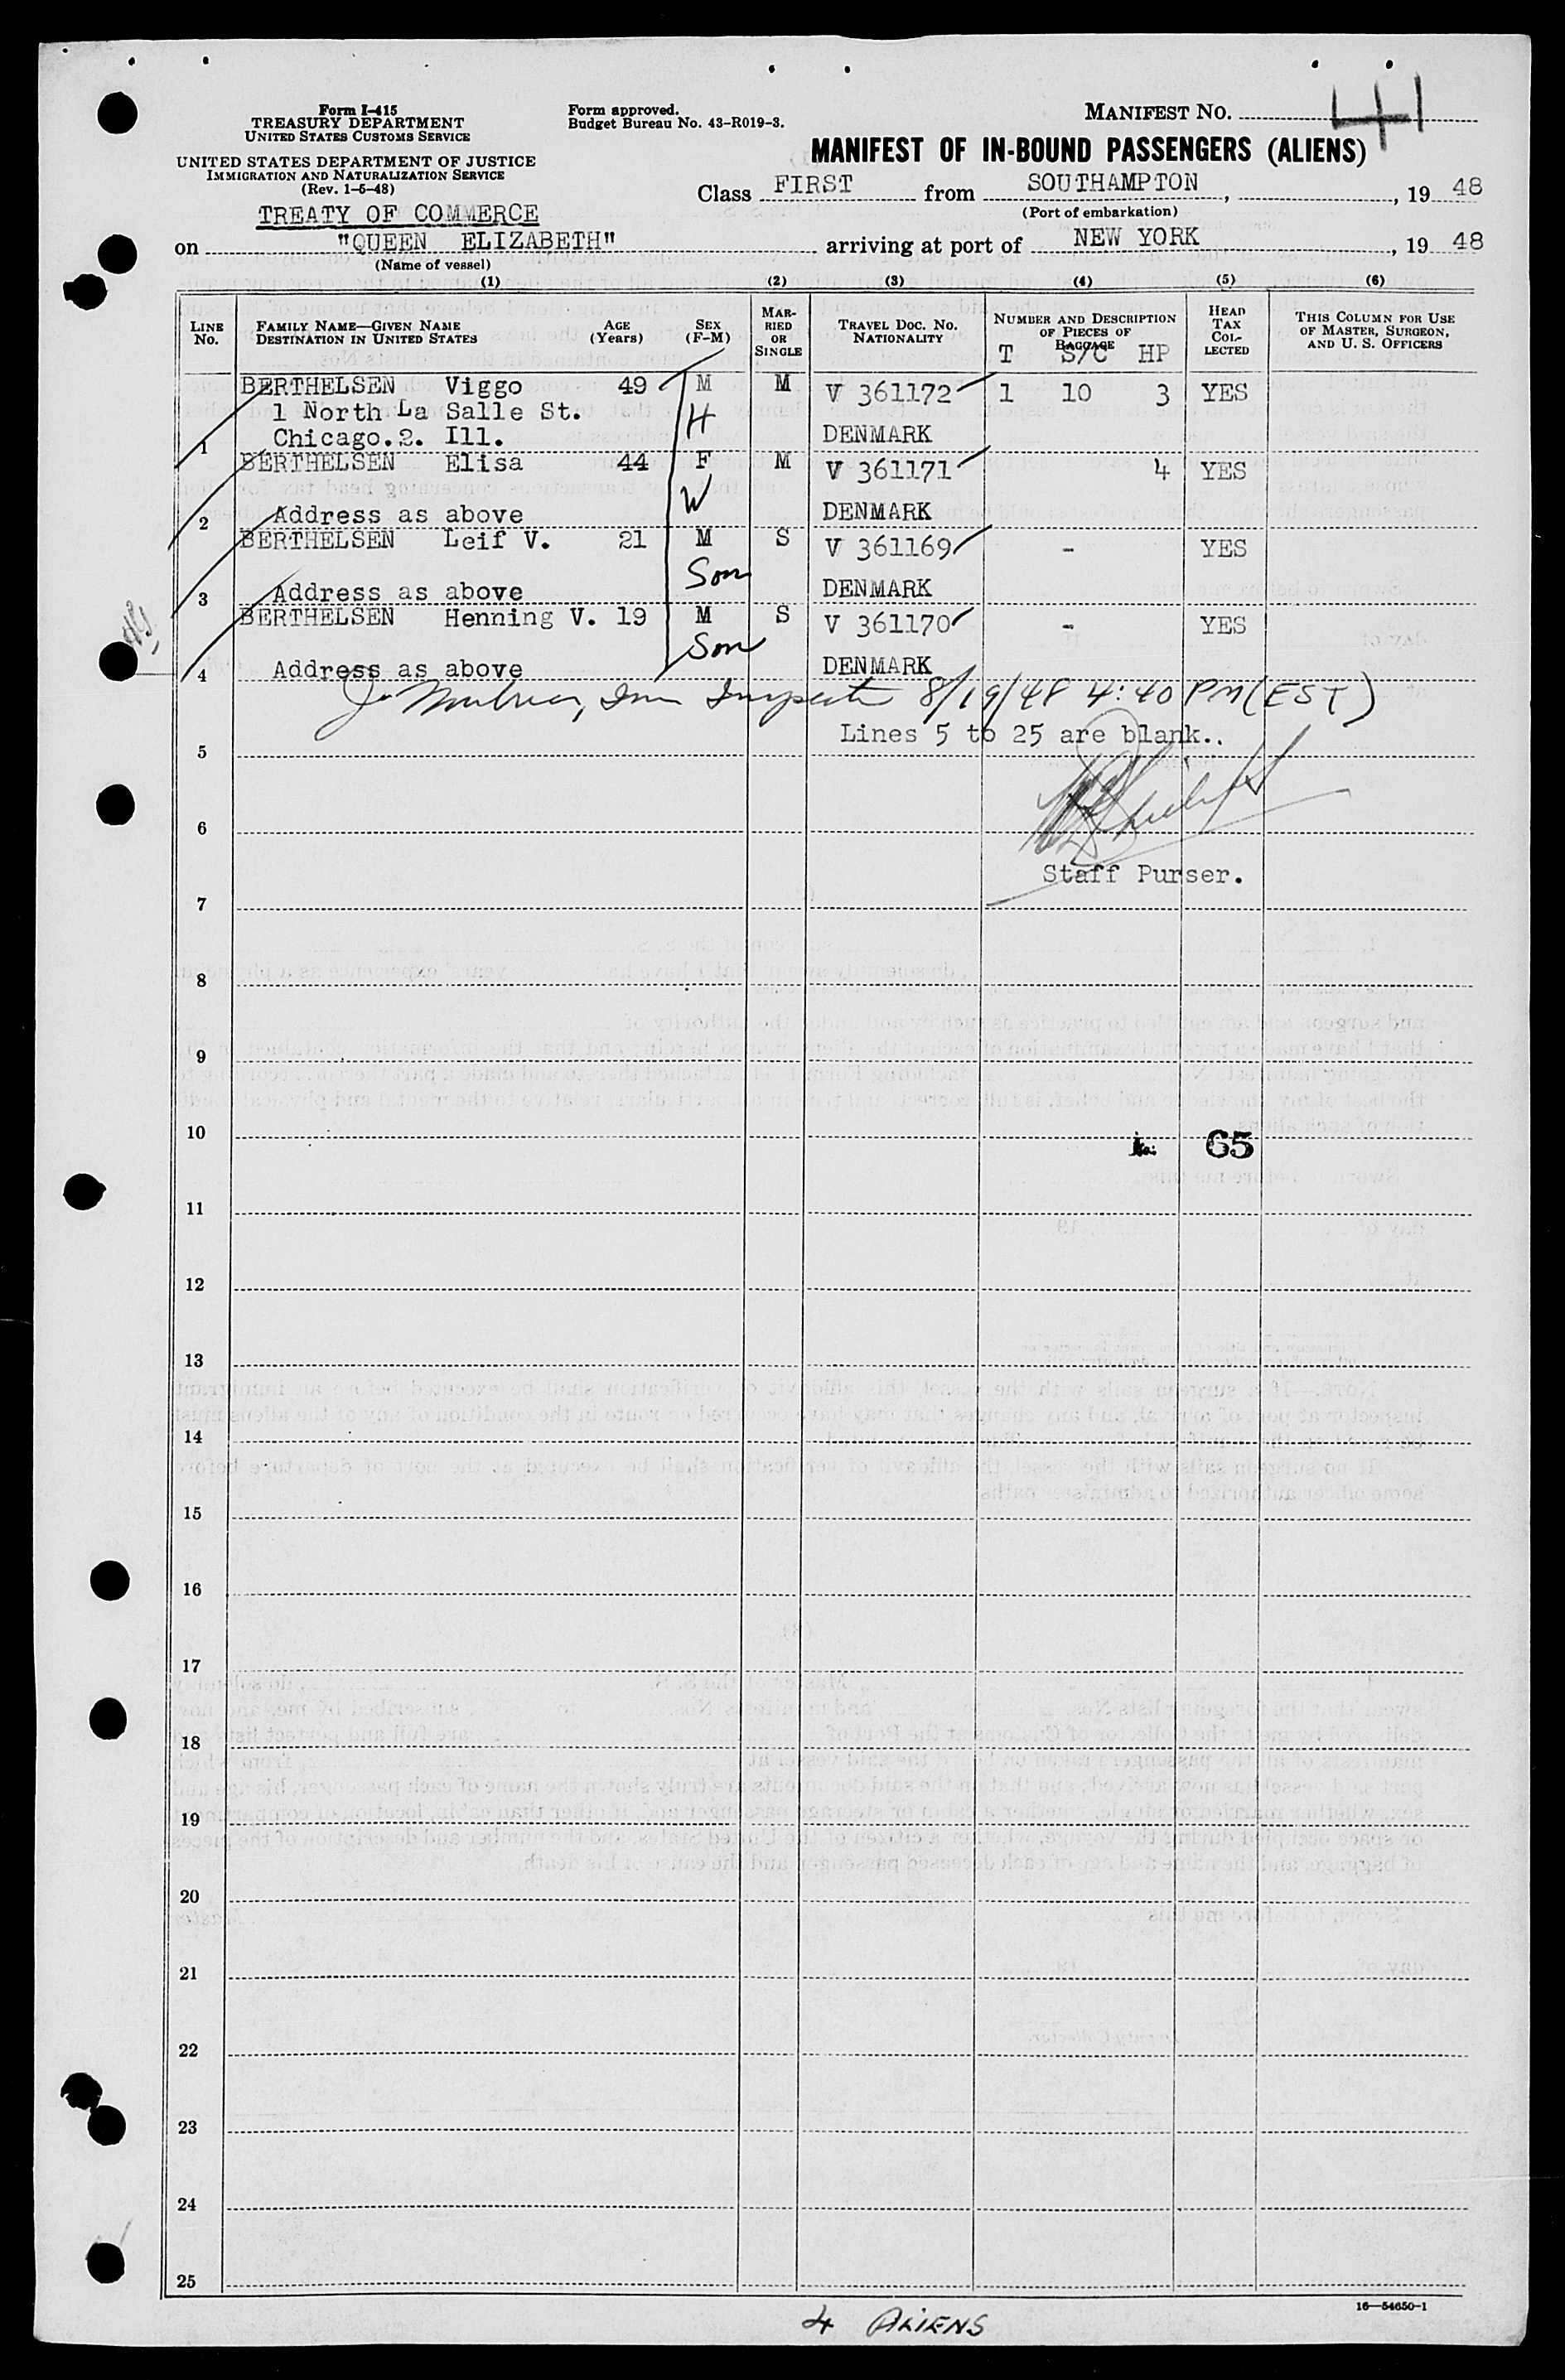 Form I-415
TREASURY DEPARTMENT
UNITED STATES CUSTOMS SERVICE
UNITED STATES DEPARTMENT OF JUSTICE
IMMIGRATION AND NATURALIZATION SERVICE
(Rev. 1-5-48)
Form approved.
Budget Bureau No. 43-R019-3.
MANIFEST NO. 41
MANIFEST OF IN-BOUND PASSENGERS (ALIENS)
Class FIRST from SOUTHAMPTON, , 19 48
(Port of embarkation)
TREATY OF COMMERCE
on "QUEEN ELIZABETH" arriving at port of NEW YORK, 19 48
(Name of vessel)
(1) (2) (3) (4) (5) (6)
LINE No. FAMILY NAME—GIVEN NAME DESTINATION IN UNITED STATES AGE (Years) SEX (F-M) MARRIED OR SINGLE TRAVEL DOC. NO. NATIONALITY NUMBER AND DESCRIPTION OF PIECES OF BAGGAGE HEAD TAX COLLECTED THIS COLUMN FOR USE OF MASTER, SURGEON, AND U. S. OFFICERS
T S/C HP
BERTHELSEN Viggo 49 M M V 361172 1 10 3 YES
1 North La Salle St. H
1 Chicago.2. Ill. DENMARK
BERTHELSEN Elisa 44 F M V 361171 4 YES
W
2 Address as above DENMARK
BERTHELSEN Leif V. 21 M S V 361169 - YES
Son
3 Address as above DENMARK
BERTHELSEN Henning V. 19 M S V 361170 - YES
Son
4 Address as above DENMARK
8/19/48 4:40 PM (EST)
Lines 5 to 25 are blank..
5
6
Staff Purser.
7
8
9
10
65
11
12
13
14
15
16
17
18
19
20
21
22
23
24
25
16—54650-1
4 ALIENS